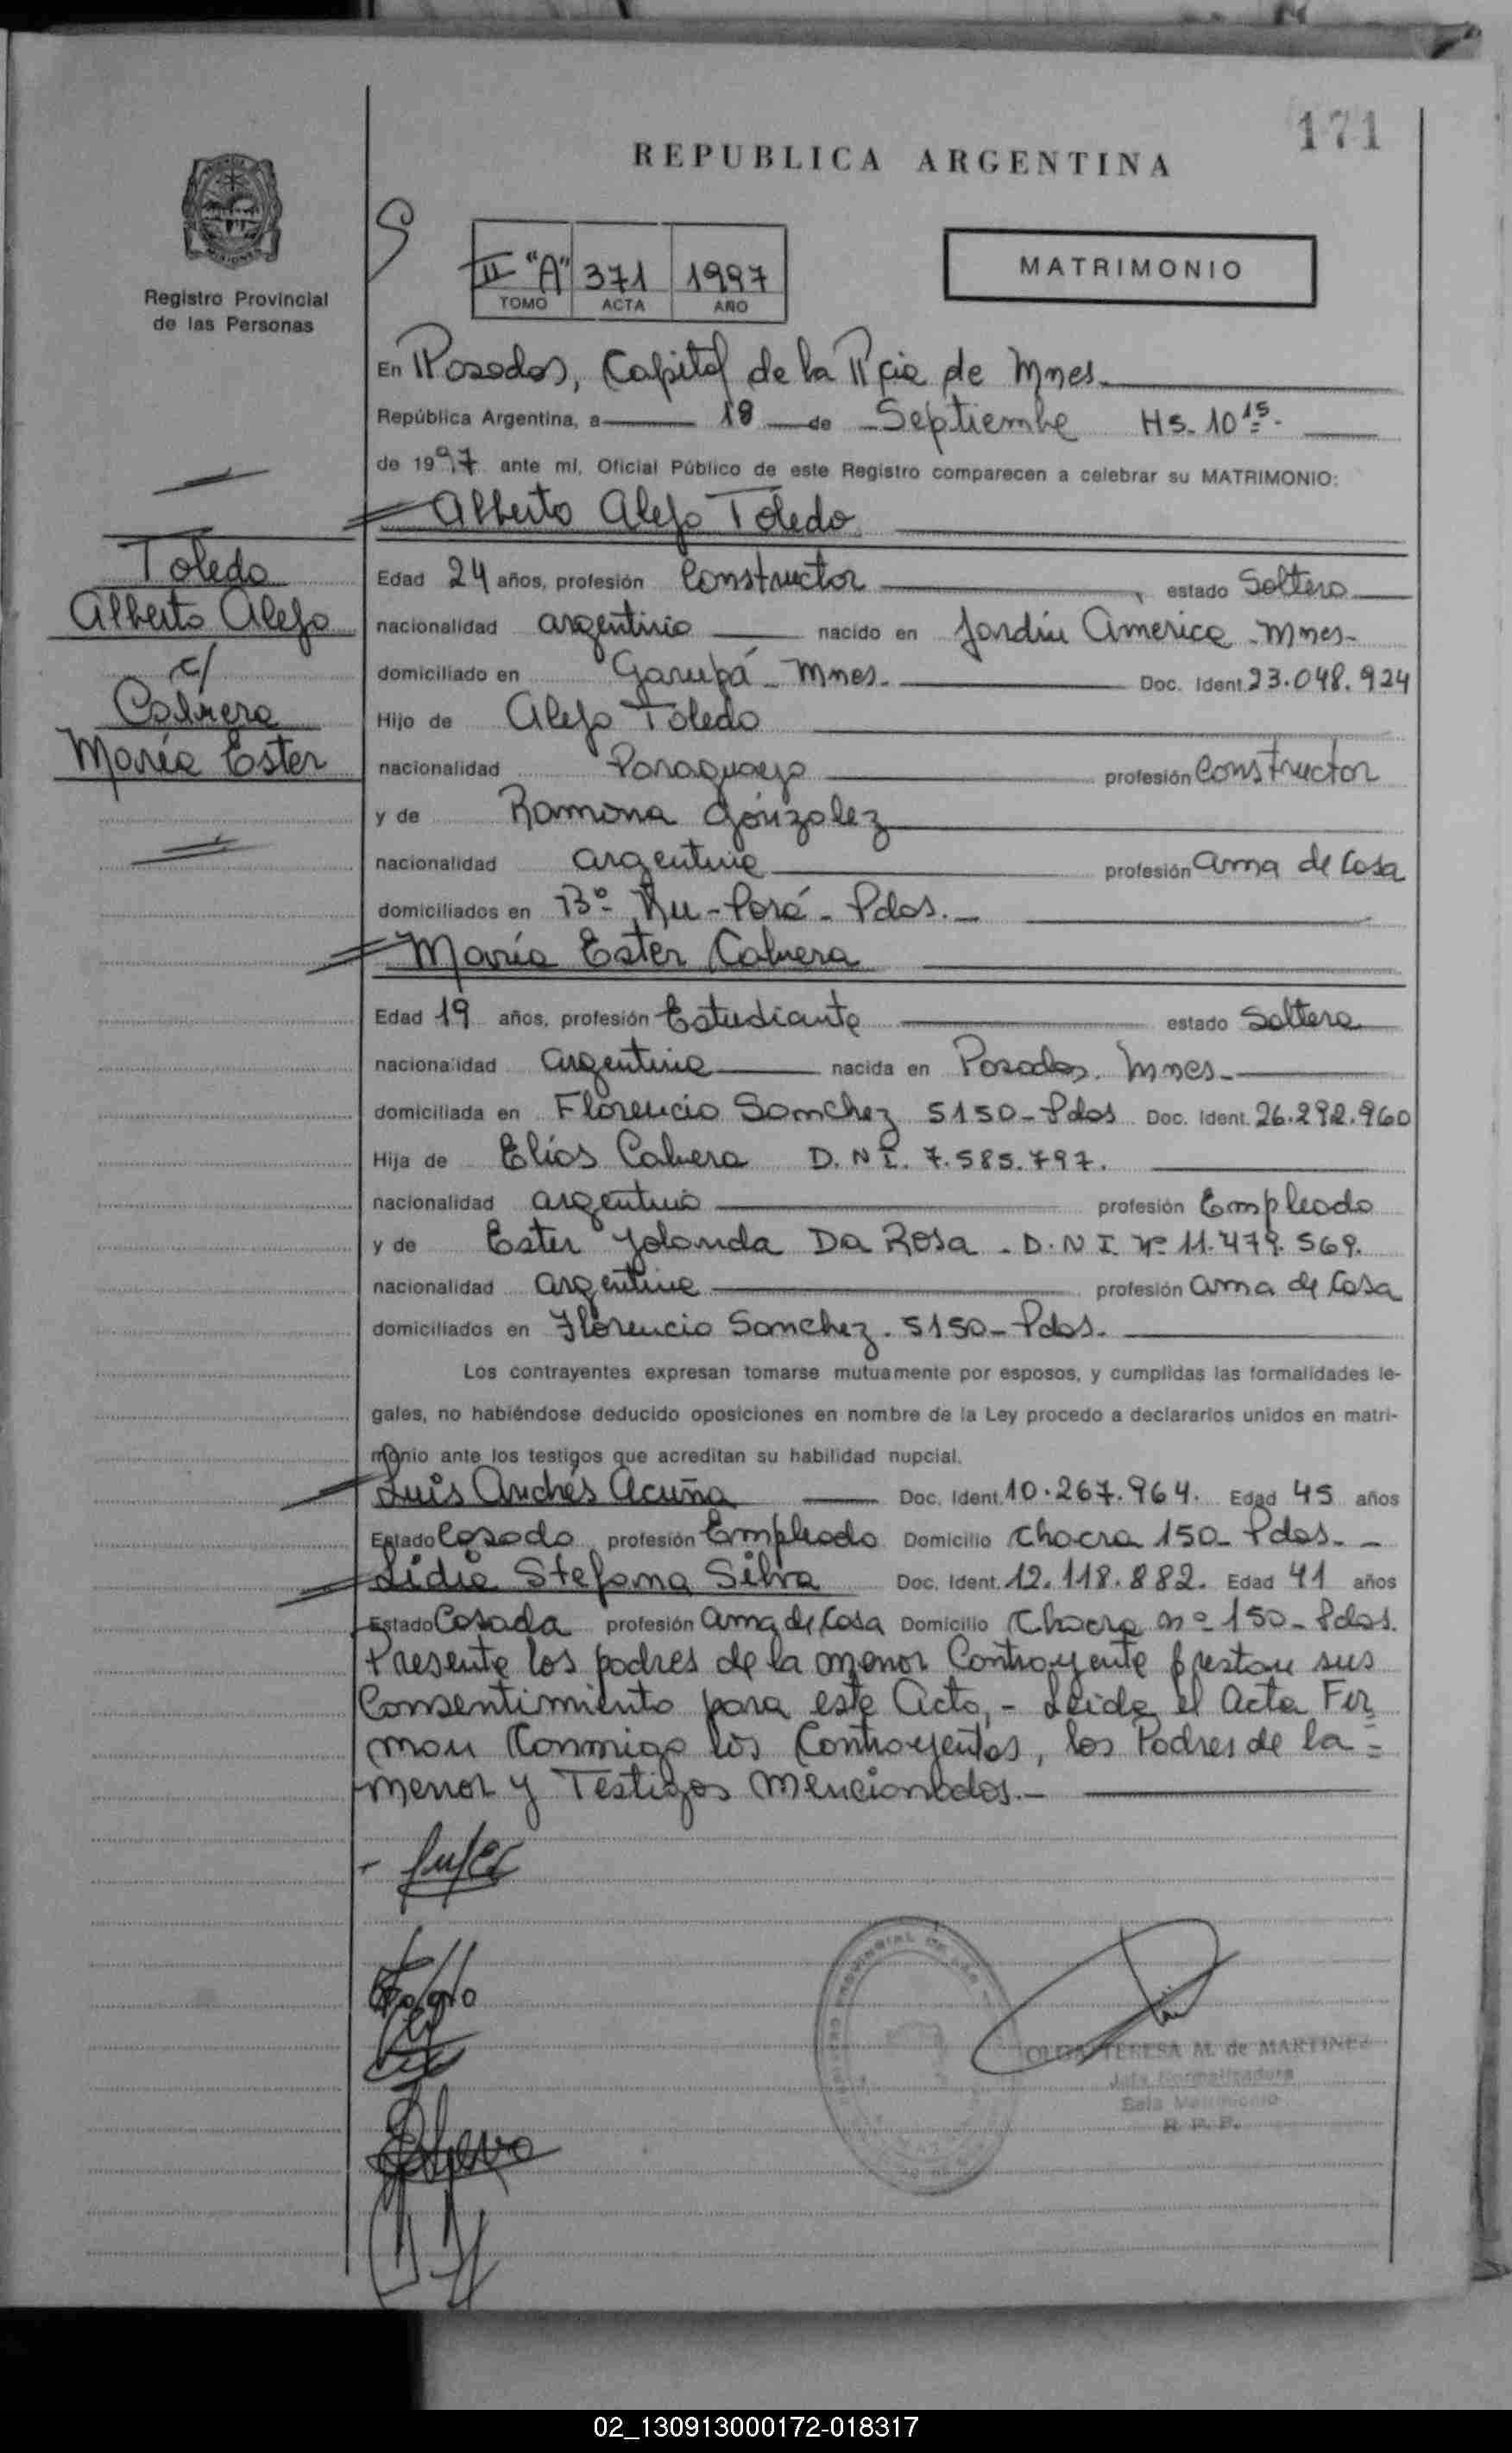 171
REPUBLICA ARGENTINA
Registro Provincial
de las Personas
II "A" 371 1997
TOMO ACTA AÑO
MATRIMONIO
En Posadas, Capital de la Pcia de Mnes.
República Argentina, a 18 de Septiembre Hs. 10 15
de 1997 ante mí, Oficial Público de este Registro comparecen a celebrar su MATRIMONIO:
Alberto Alejo Toledo
Toledo
Alberto Alejo
c/
Cabrera
María Ester
Edad 24 años, profesión Constructor, estado Soltero
nacionalidad argentino nacido en Jardín America - Mnes-
domiciliado en Garupá - Mnes. Doc. Ident. 23.048.924
Hijo de Alejo Toledo
nacionalidad Paraguayo profesión Constructor
y de Ramona Gónzalez
nacionalidad argentina profesión ama de Casa
domiciliados en B° Ñu-Porá - Pdas.
María Ester Cabrera
Edad 19 años, profesión Estudiante estado Soltera
nacionalidad argentina nacida en Posadas. Mnes-
domiciliada en Florencio Sanchez 5150 - Pdas Doc. Ident. 26.292.960
Hija de Elías Cabrera D.N.I. 7.585.797.
nacionalidad argentino profesión Empleado
y de Ester Yolanda Da Rosa - D.N.I. N° 11.479.569.
nacionalidad argentina profesión ama de Casa
domiciliados en Florencio Sanchez. 5150 - Pdas.
Los contrayentes expresan tomarse mutuamente por esposos, y cumplidas las formalidades le-
gales, no habiéndose deducido oposiciones en nombre de la Ley procedo a declararlos unidos en matri-
monio ante los testigos que acreditan su habilidad nupcial.
Luis Andrés Acuña Doc. Ident. 10.267.964. Edad 45 años
Estado Casado profesión Empleado Domicilio Chacra 150 - Pdas.
Lidia Stefana Silva Doc. Ident. 12.118.882. Edad 41 años
Estado Casada profesión ama de Casa Domicilio Chacra n° 150 - Pdas.
Presente los padres de la menor Contrayente prestan sus
Consentimiento para este Acto, - Leida el Acta Fir
man Conmigo los Contrayentes, los Padres de la =
menor y Testigos Mencionados.-
OLGA TERESA M. de MARTINEZ
Jefa Normalizadora
Sala Matrimonio
R. P. P.
02_130913000172-018317